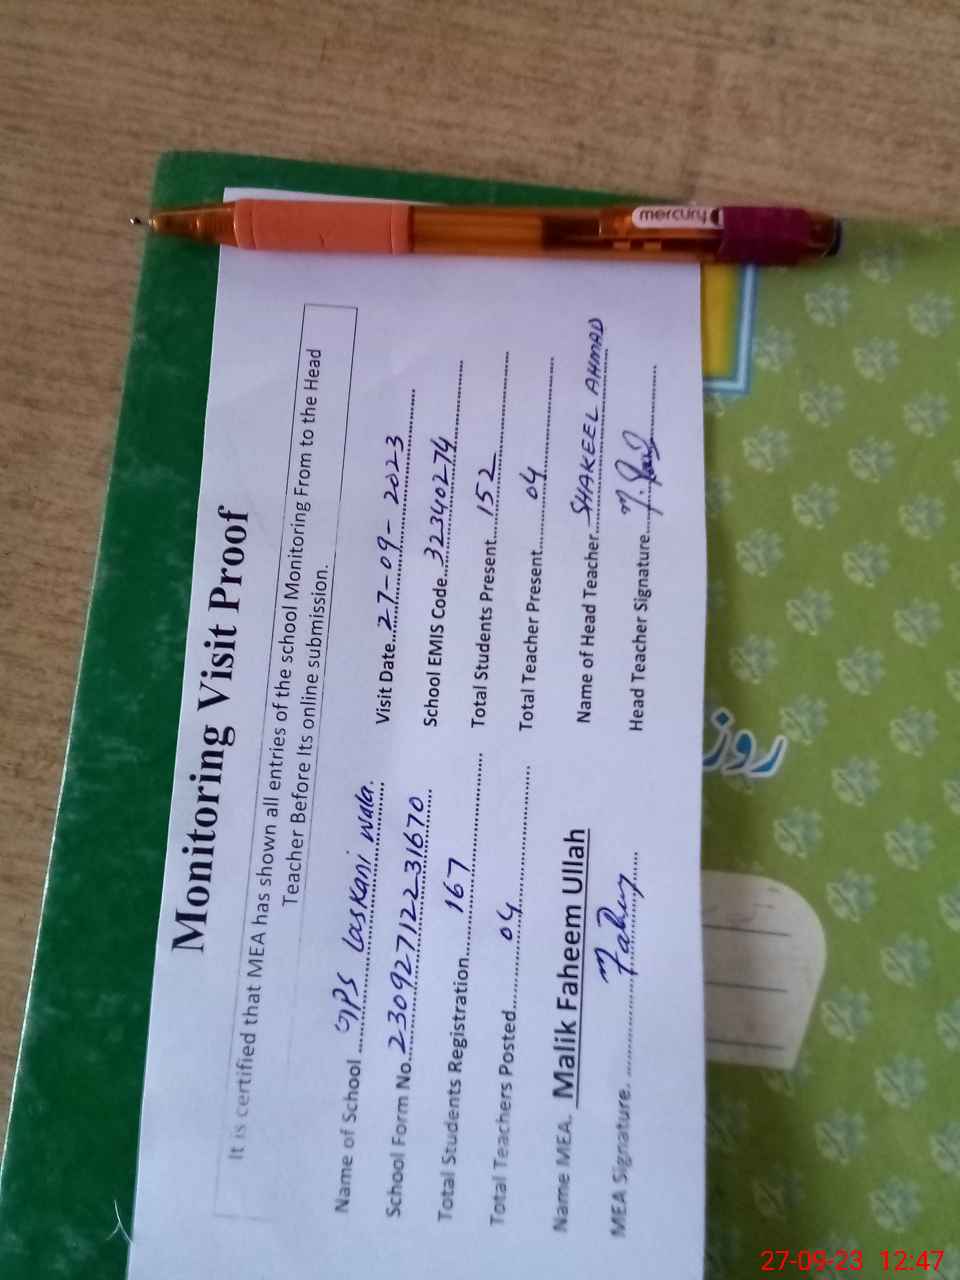 Monitoring Visit Proof
It is certified that MEA has shown all entries of the school Monitoring From to the Head
Teacher Before Its online submission.
Name of School GPS Laskani Wala. Visit Date 27-09-2023
School Form No. 230927122231670 School EMIS Code 32340274
Total Students Registration 167 Total Students Present 152
Total Teachers Posted 04 Total Teacher Present 04
Name MEA. Malik Faheem Ullah Name of Head Teacher SHAKEEL AHMAD
MEA Signature. Fahim Head Teacher Signature
mercury
روز
27-09-23 12:47